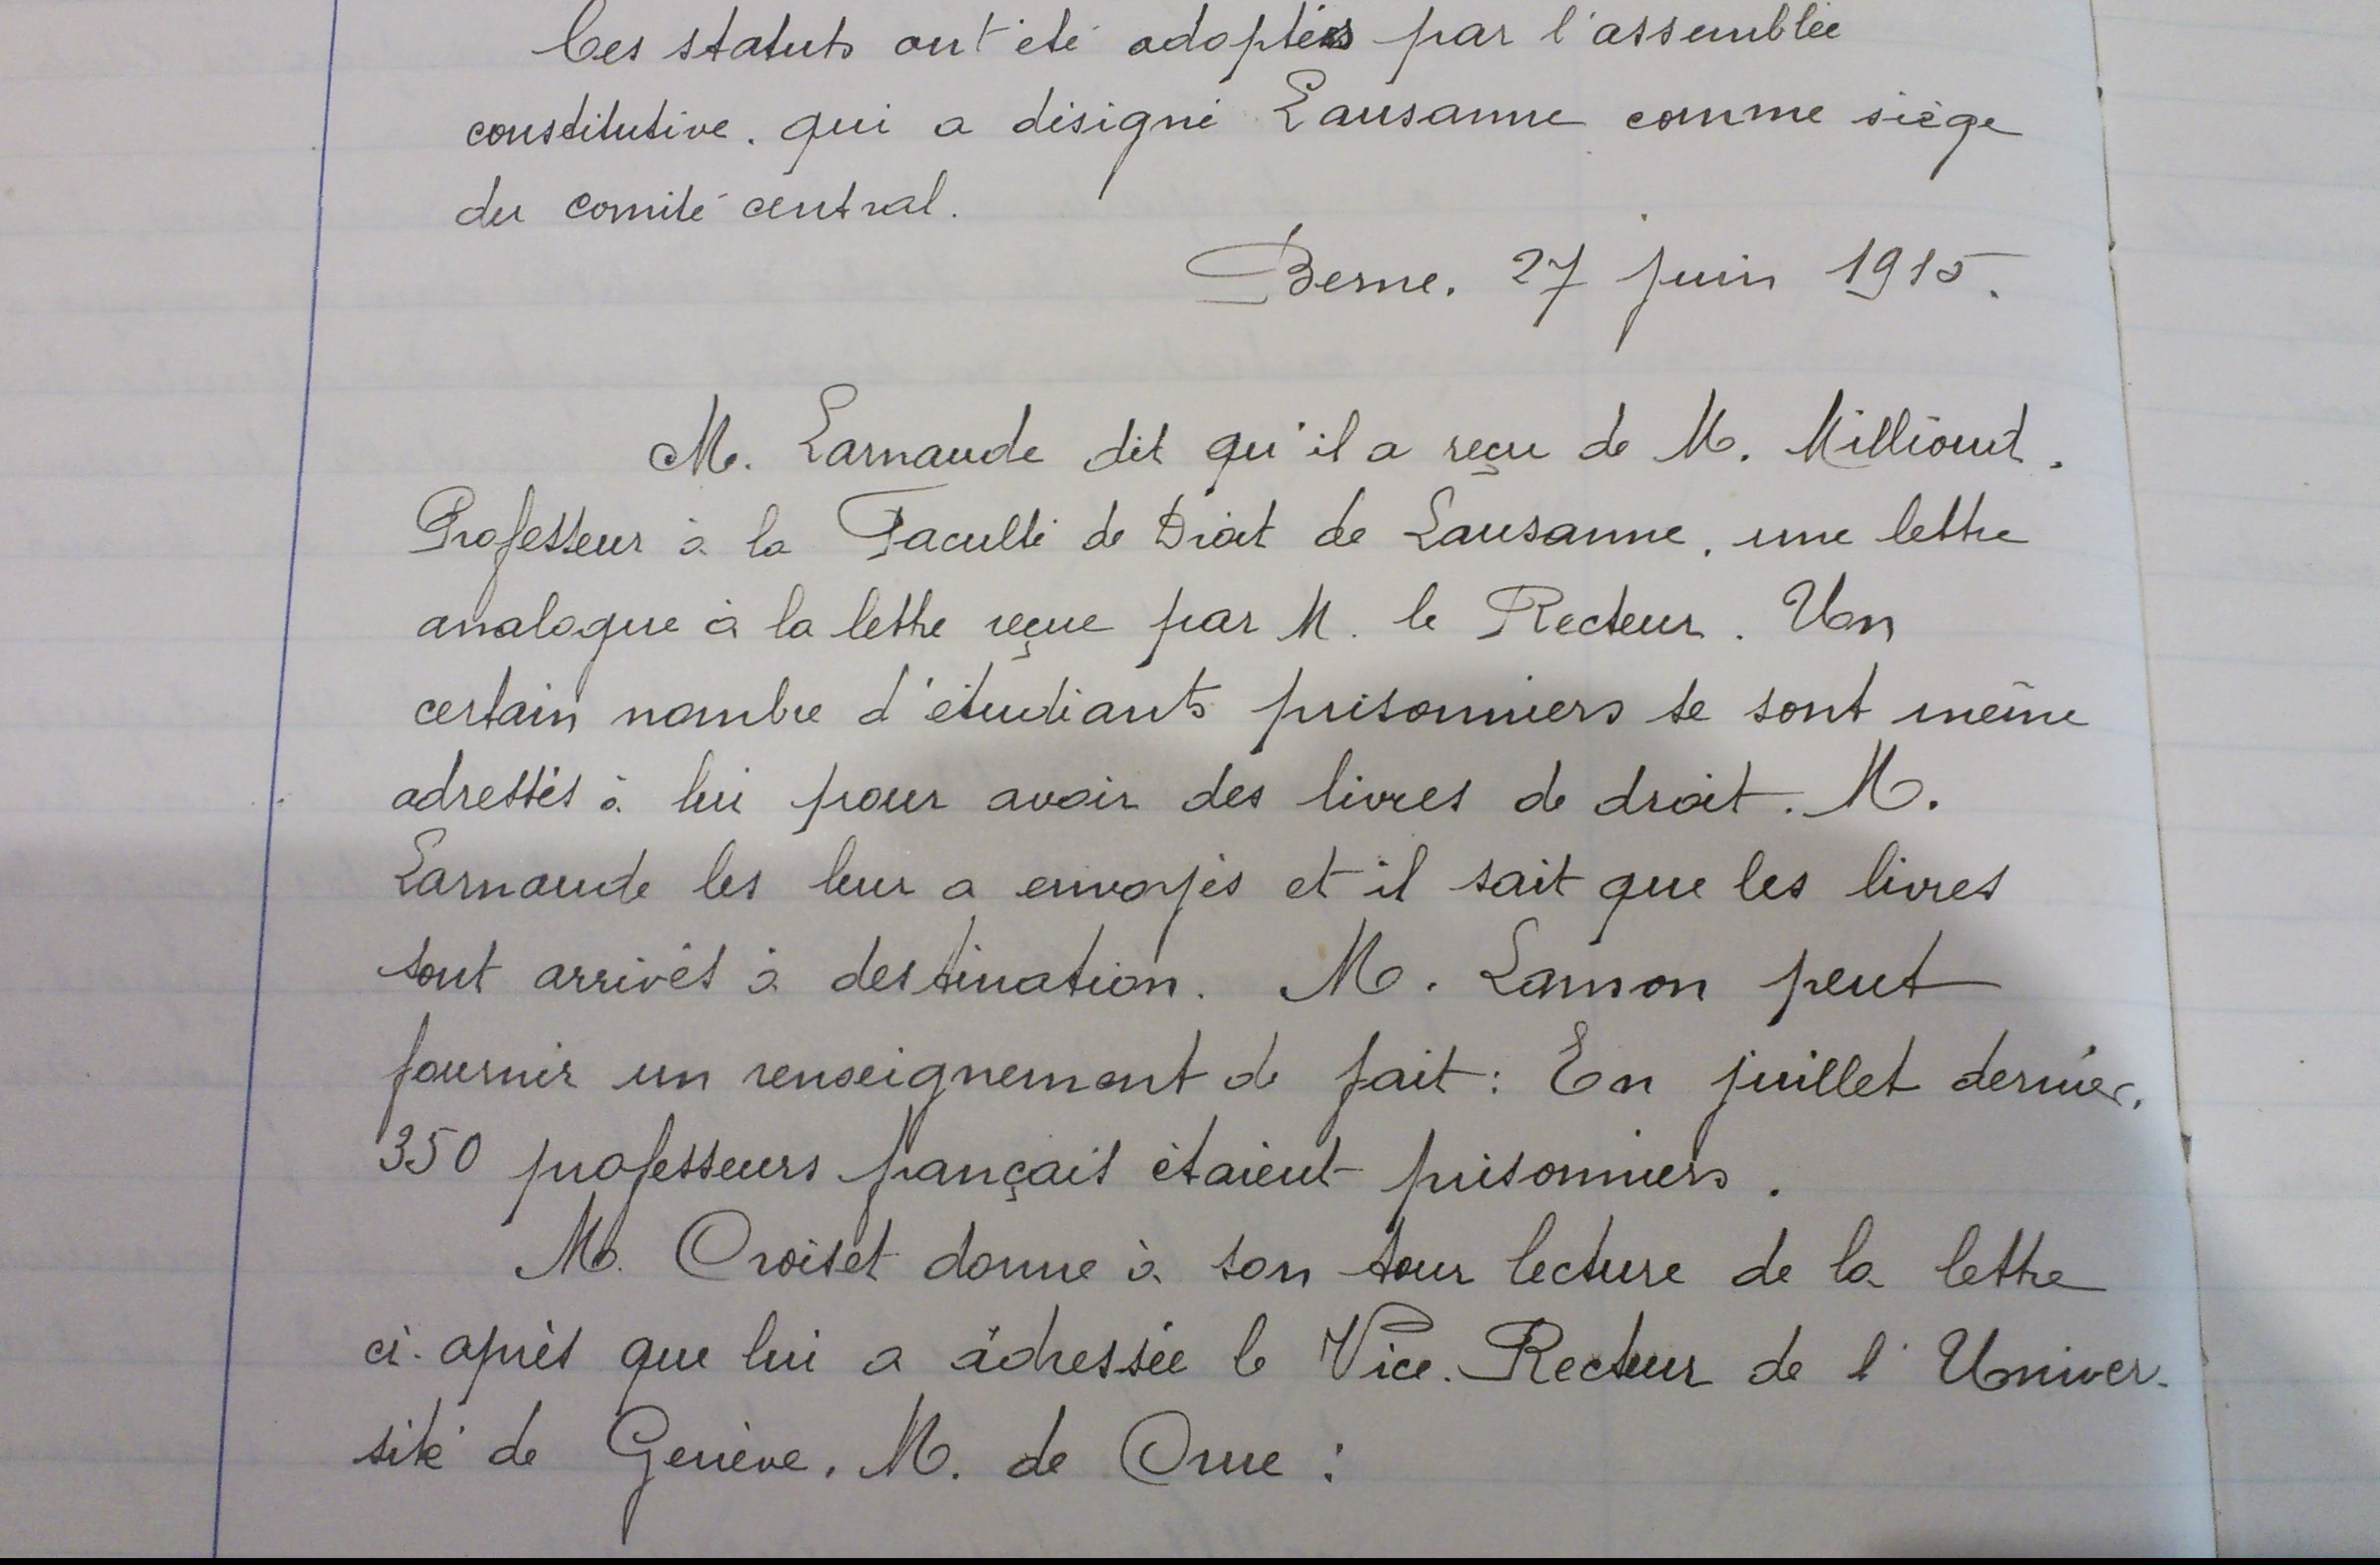 Ces statuts ont été adoptés par l'assemblée
constitutive, qui a désigné Lausanne comme siège
du comité central.
Berne, 27 juin 1915.
M. Larnaude dit qu'il a reçu de M. Millioud,
Professeur à la Faculté de Droit de Lausanne, une lettre
analogue à la lettre reçue par M. le Recteur. Un
certain nombre d'étudiants prisonniers se sont même
adressés à lui pour avoir des livres de droit. M.
Larnaude les leur a envoyés et il sait que les livres
sont arrivés à destination. M. Lanson peut
fournir un renseignement de fait : En juillet dernier,
350 professeurs français étaient prisonniers.
M. Croiset donne à son tour lecture de la lettre
ci-après que lui a adressée le Vice-Recteur de l'Univer-
sité de Genève, M. de Crue :